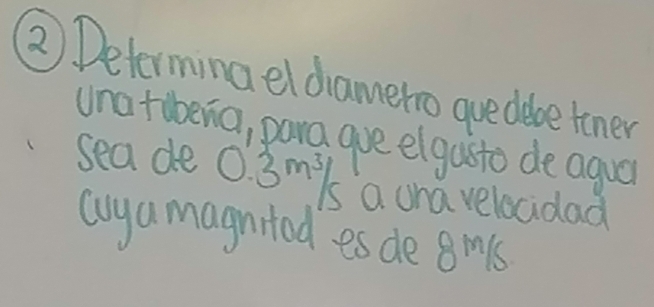 ② Determina el diametro que debe tener
una tubería, para que el gasto de agua
sea de 0.3 m³/s a una velocidad
cuya magnitud es de 8 m/s.